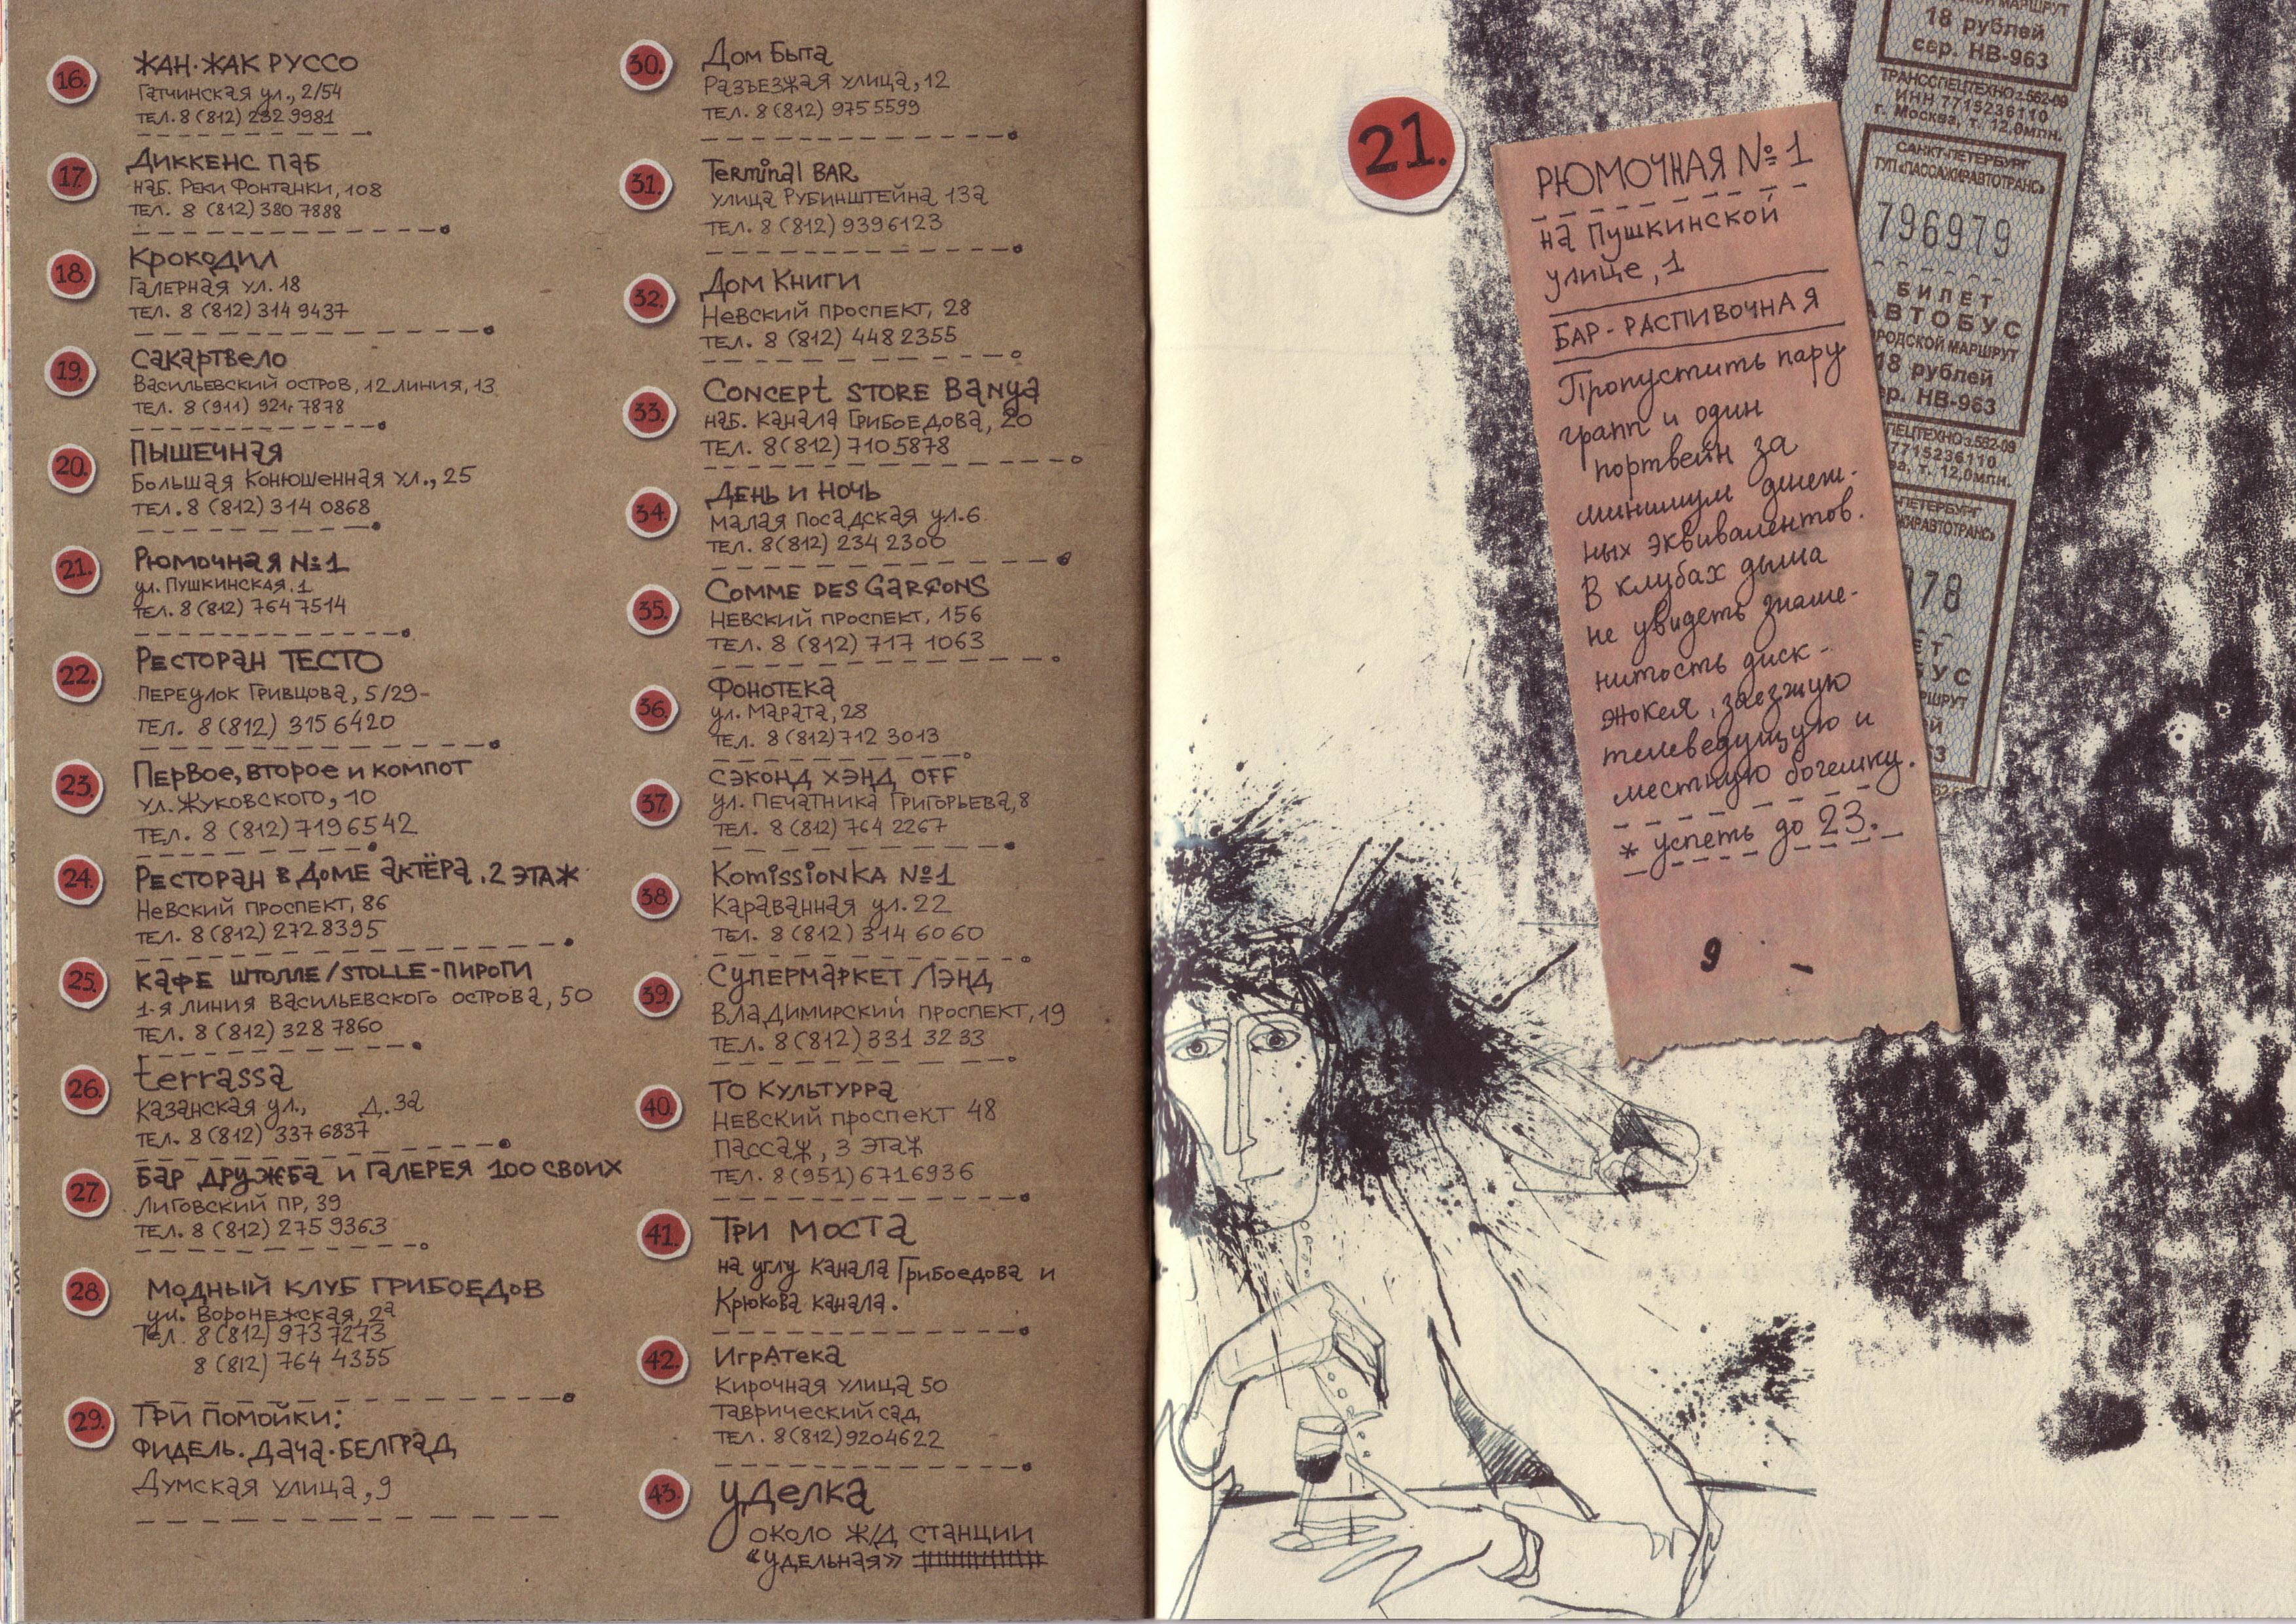 16.
ЖАН-ЖАК РУССО
Гатчинская ул., 2/54
ТЕЛ. 8 (812) 232 9981
17.
Диккенс паб
наб. Реки Фонтанки, 108
ТЕЛ. 8 (812) 380 7888
18.
Крокодил
Галерная ул. 18
ТЕЛ. 8 (812) 314 9437
19.
Сакартвело
Васильевский остров, 12 линия, 13
ТЕЛ. 8 (911) 921 7878
20.
Пышечная
Большая Конюшенная ул., 25
ТЕЛ. 8 (812) 314 0868
21.
Рюмочная №1
ул. Пушкинская, 1
ТЕЛ. 8 (812) 764 7514
22.
Ресторан ТЕСТО
переулок Гривцова, 5/29-
ТЕЛ. 8 (812) 315 6420
23.
Первое, второе и компот
ул. Жуковского, 10
ТЕЛ. 8 (812) 719 6542
24.
Ресторан в доме актёра, 2 этаж
Невский проспект, 86
ТЕЛ. 8 (812) 272 8395
25.
Кафе Штолле/Stolle-пироги
1-я линия Васильевского острова, 50
ТЕЛ. 8 (812) 328 7860
26.
terrassa
Казанская ул., д. 3а
ТЕЛ. 8 (812) 337 6837
27.
Бар Дружба и галерея 100 своих
Лиговский пр, 39
ТЕЛ. 8 (812) 275 9363
28.
Модный клуб Грибоедов
ул. Воронежская, 2а
Тел. 8 (812) 973 7273
8 (812) 764 4355
29.
Три помойки:
Фидель. Дача. Белград
Думская улица, 9
30.
Дом Быта
Разъезжая улица, 12
ТЕЛ. 8 (812) 975 5599
31.
Terminal BAR
улица Рубинштейна 13а
ТЕЛ. 8 (812) 9396123
32.
Дом Книги
Невский проспект, 28
ТЕЛ. 8 (812) 448 2355
33.
Concept store Banya
наб. канала Грибоедова, 20
ТЕЛ. 8 (812) 710 5878
34.
День и ночь
малая посадская ул. 6
ТЕЛ. 8 (812) 234 2300
35.
Comme des Garçons
Невский проспект, 156
ТЕЛ. 8 (812) 717 1063
36.
Фонотека
ул. Марата, 28
ТЕЛ. 8 (812) 712 3013
37.
сэконд хэнд OFF
ул. Печатника Григорьева, 8
ТЕЛ. 8 (812) 764 2267
38.
Komissionka №1
Караванная ул. 22
ТЕЛ. 8 (812) 314 6060
39.
Супермаркет Лэнд
Владимирский проспект, 19
ТЕЛ. 8 (812) 331 32 33
40.
ТО Культурра
Невский проспект 48
Пассаж, 3 этаж
ТЕЛ. 8 (951) 6716936
41.
Три моста
на углу канала Грибоедова и
Крюкова канала.
42.
ИгрАтека
Кирочная улица 50
Таврический сад
ТЕЛ. 8 (812) 9204622
43.
уделка
около ж/д станции
«Удельная»
21.
РЮМОЧНАЯ №1
на Пушкинской
улице, 1
БАР-РАСПИВОЧНАЯ
Пропустить пару
грапп и один
портвейн за
минимум денеж-
ных эквивалентов.
В клубах дыма
не увидеть знаме-
нитость диск-
жокея, заезжую
телеведущую и
местную богемку.
* успеть до 23.
9 -
ОЙ МАРШРУТ
18 рублей
сер. НВ-963
ТРАНССПЕЦТЕХНО з.562-09
ИНН 7715236110
г. Москва, т. 12,0млн.
САНКТ-ПЕТЕРБУРГ
ТУП «ПАССАЖИРАВТОТРАНС»
796979
БИЛЕТ
АВТОБУС
РОДСКОЙ МАРШРУТ
18 рублей
ер. НВ-963
ПЕЦТЕХНО з.562-09
7715236110
ва, т. 12,0млн.
ПЕТЕРБУРГ
ЖИРАВТОТРАНС»
978
ЕТ
БУС
РШРУТ
ей
63